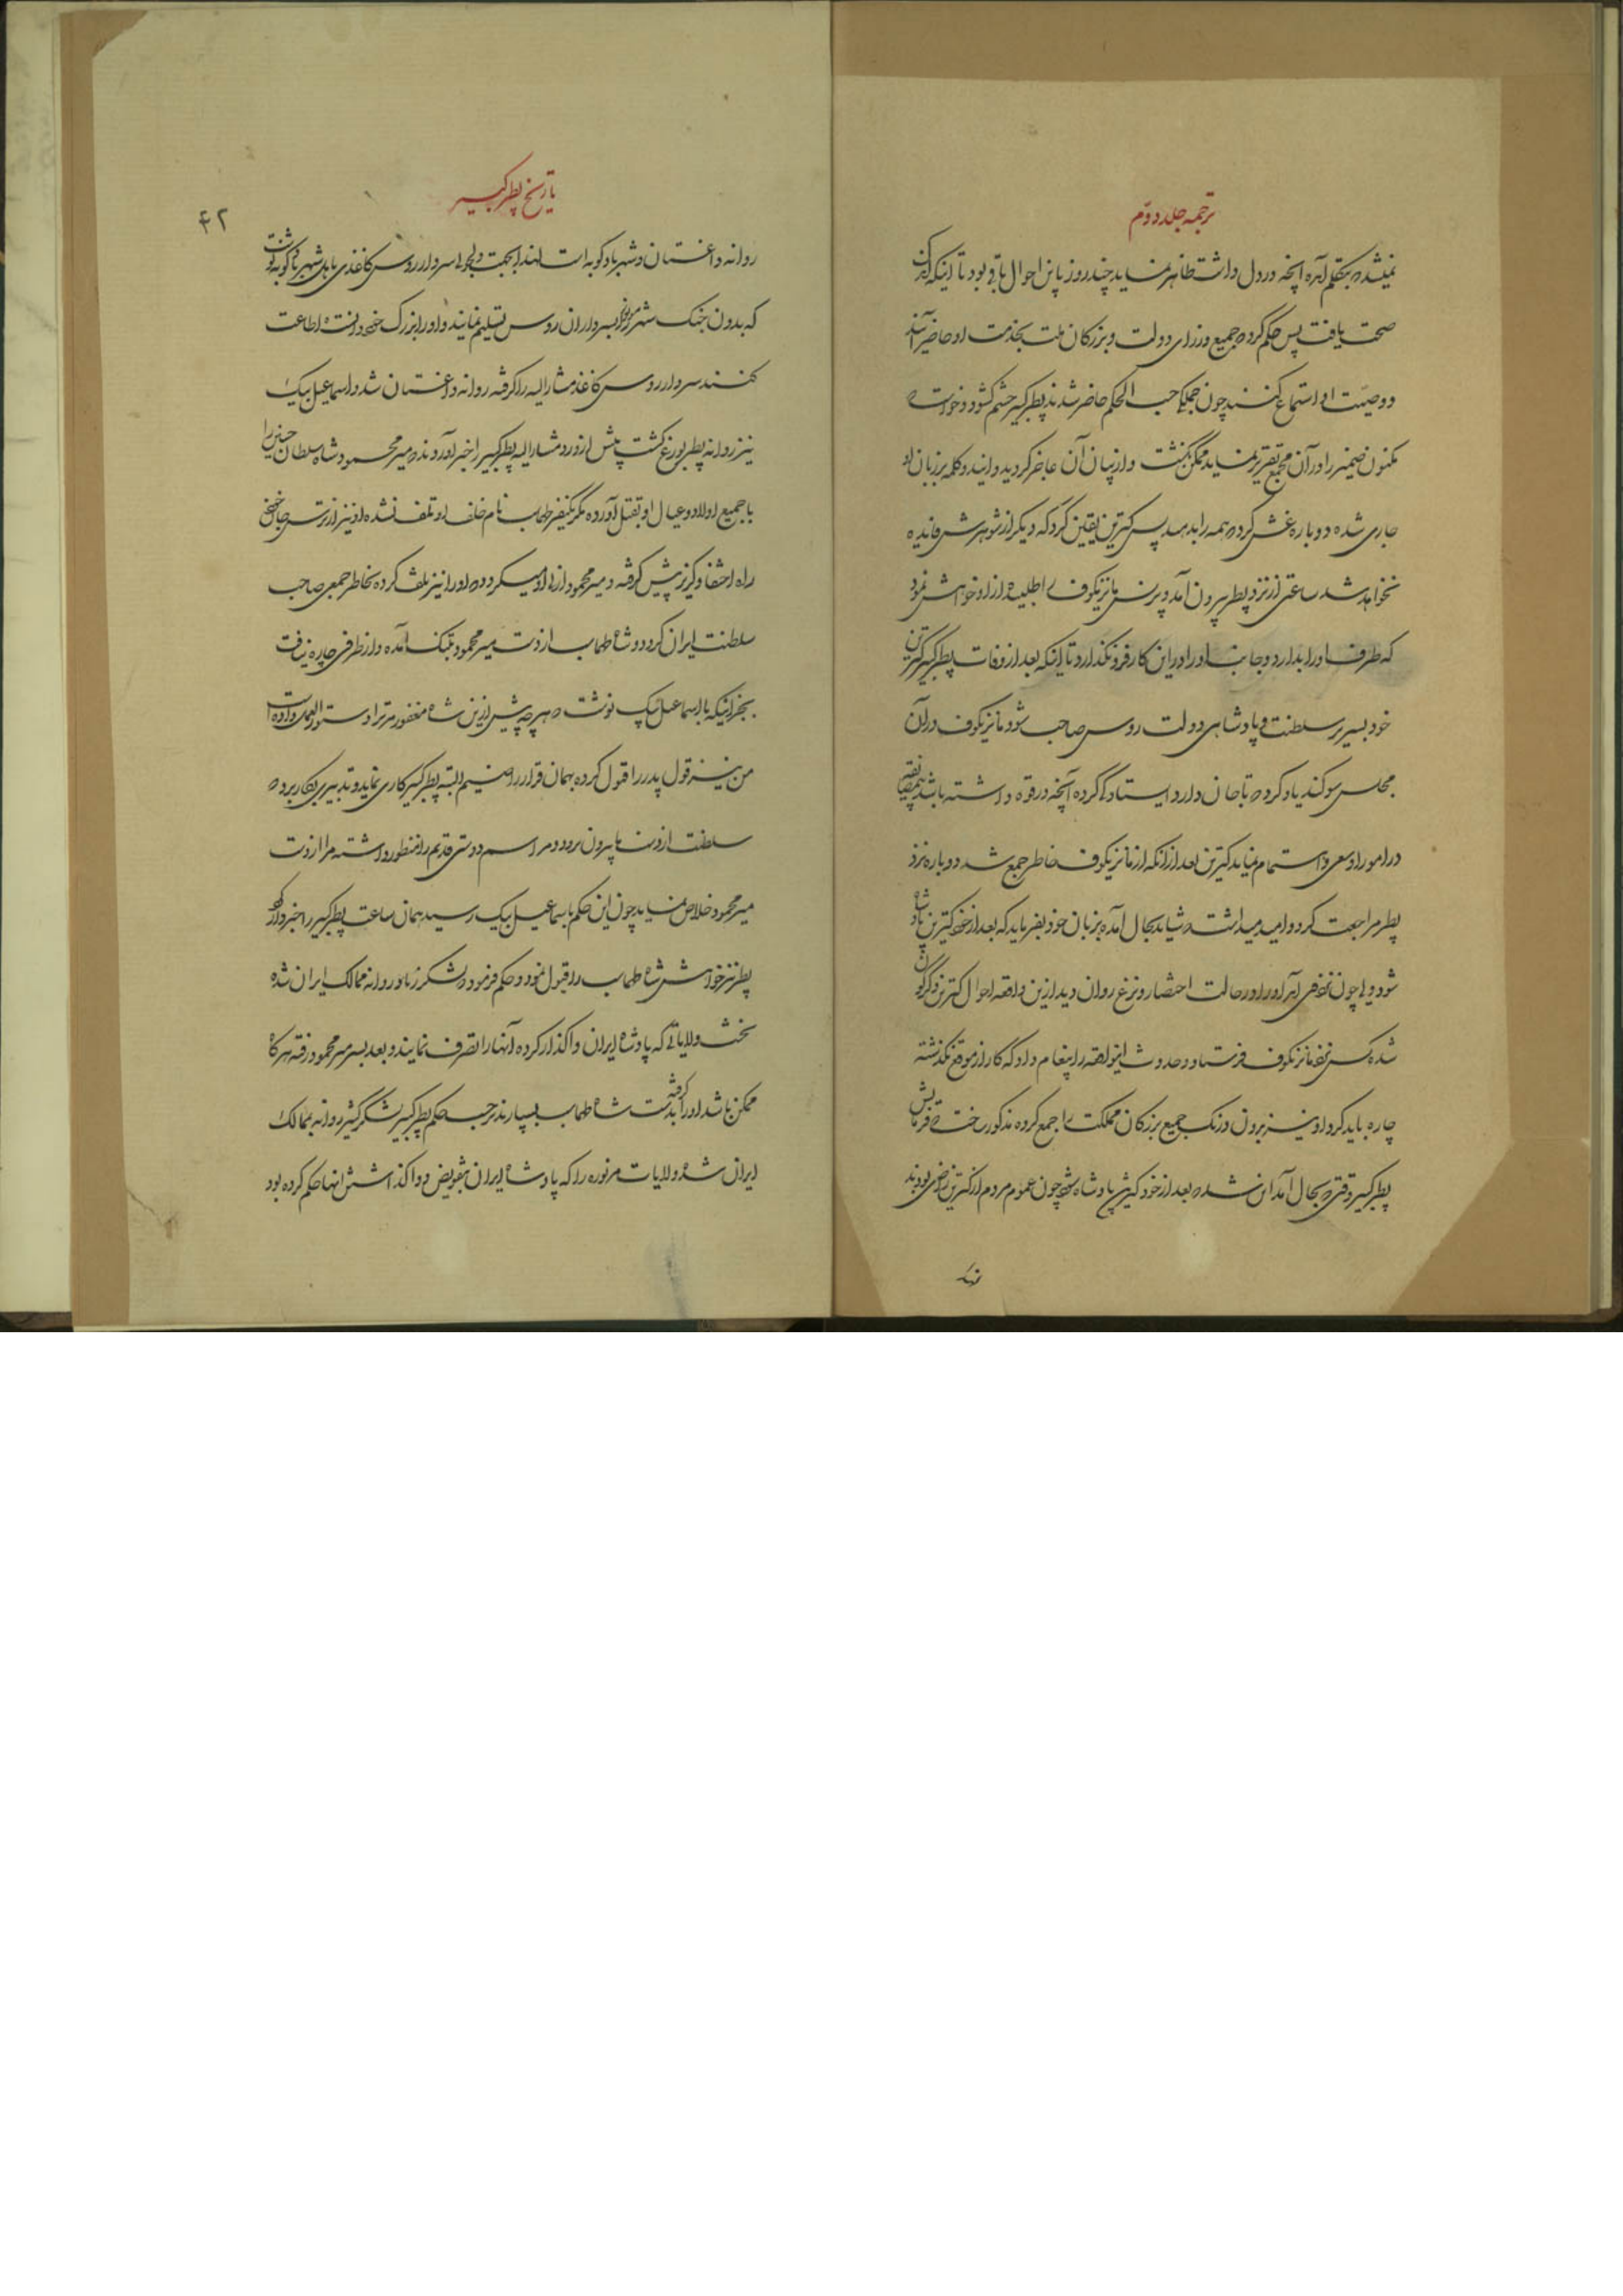 ترجمه جلد دوّم
نمیشد که بتکلم آمده آنچه در دل داشت ظاهر نماید چند روز باین احوال باقی بود تا اینکه اندکی
صحت یافت پس حکم کرد که جمیع وزرای دولت و بزرکان ملت بخدمت او حاضر آیند
و وصیت او استماع کنند چون جملکی حسب الحکم حاضر شدند پطر کبیر چشم کشود و خواست که
مکنون ضمیر را در آن مجمع تقریر نماید ممکن نکشت و از بیان آن عاجز کردید و اینکه کلمه بر زبان او
جاری شده دوباره غش کرد که همه را بدهید پس کترین یقین کرد که دیکر از شوهرش فایده
نخواهد شد ساعتی از نزد پطر بیرون آمد و پرنس مانزیکوف را طلبیده از او خواهش نمود
که طرف او را بدارد و جانب او را در این کار فرو نکذارد تا اینکه بعد از وفات پطر کبیر کترین
خود بسریر سلطنت و پادشاهی دولت روس صاحب شود مانزیکوف در آن
مجلس سوکند یاد کرد که تا جان دارد ایستادکی کرده آنچه در قوه داشته باشد
در امور او سعی و اهتمام نماید کترین بعد از آنکه از مانزیکوف خاطر جمع شد دوباره نزد
پطر مراجعت کرد و امید میداشت که شاید بحال آمده بزبان خود بفرماید که بعد از خود کترین پادشاه
شود ولی چون او را در حالت احتضار و نزع روان دید از این واقعه احوال کترین دیکرکون
شده کس نزد مانزیکوف فرستاد و حدوث اینواقعه را پیغام داد که کار از موقع نکذشته
چاره باید کرد او نیز بدون درنک جمیع بزرکان مملکت را جمع کرده مذکور ساخت که فرمایش
پطر کبیر وقتی که بحال آمد این شد که بعد از خود کترین پادشاه شود چون عموم مردم از کترین راضی بودند
تاریخ پطر کبیر
۴۲
روانه داغستان و شهر بادکوبه است لهذا بجهت دلجوئی سردار روس کاغذی باهل شهر بادکوبه نوشت
که بدون جنک شهر مزبور را بسرداران روس تسلیم نمایند و او را بزرک خود دانسته اطاعت
کنند سردار روس کاغذ مشارالیه را کرفته روانه داغستان شد و اسماعیل بیک
نیز روانه پطربورغ کشت پیش از ورود مشارالیه پطر کبیر را خبر آوردند که میر محمود شاه سلطان حسین را
با جمیع اولاد و عیال او بقتل آورده مکر یکنفر طهماسب نام خلف او تلف نشده او نیز از ترس جان خود
راه اختفا و کریز پیش کرفته و میر محمود از پی او میکردد که او را نیز تلف کرده بخاطر جمعی صاحب
سلطنت ایران کردد و شاه طهماسب از دست میر محمود بتنک آمده و از طرفی چاره نیافت
بجز اینکه باسماعیل بیک نوشت که هر چه پیش از این شاه مغفور مر ترا دستورالعمل داده است
من نیز قول پدر را قبول کرده بهمان قرار راضیم البته پطر کبیر کاری نماید و تدبیری بکار برد که
سلطنت از دست ما بیرون نرود و مراسم دوستی قدیم را منظور داشته مرا از دست
میر محمود خلاص نماید چون این حکم باسماعیل بیک رسید همان ساعت پطر کبیر را خبردار کرد
پطر نیز خواهش شاه طهماسب را قبول نمود و حکم فرمود که لشکر زیاد روانه ممالک ایران شده
نخست ولایاتی که پادشاه ایران واکذار کرده آنها را تصرف نمایند و بعد بسر میر محمود رفته هر کاه
ممکن باشد او را کرفته بدست شاه طهماسب بسپارند برحسب حکم پطر کبیر لشکر کثیر روانه ممالک
ایران شده ولایات مزبوره را که پادشاه ایران بتفویض و واکذاشتن آنها حکم کرده بود